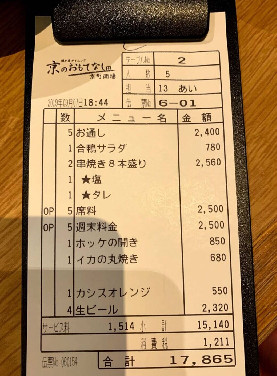 京のおもてなし
テーブルNo. 2
人数 5
担当 13 あい
18:44 伝票No 6-01
数 メニュー名 金額
5 お通し 2,400
1 合鴨サラダ 780
2 串焼き8本盛り 2,560
1 ★塩
1 ★タレ
OP 5 席料 2,500
OP 5 週末料金 2,500
1 ホッケの開き 850
1 イカの丸焼き 680
1 カシスオレンジ 550
4 生ビール 2,320
サービス料 1,514 小計 15,140
消費税 1,211
合計 17,865